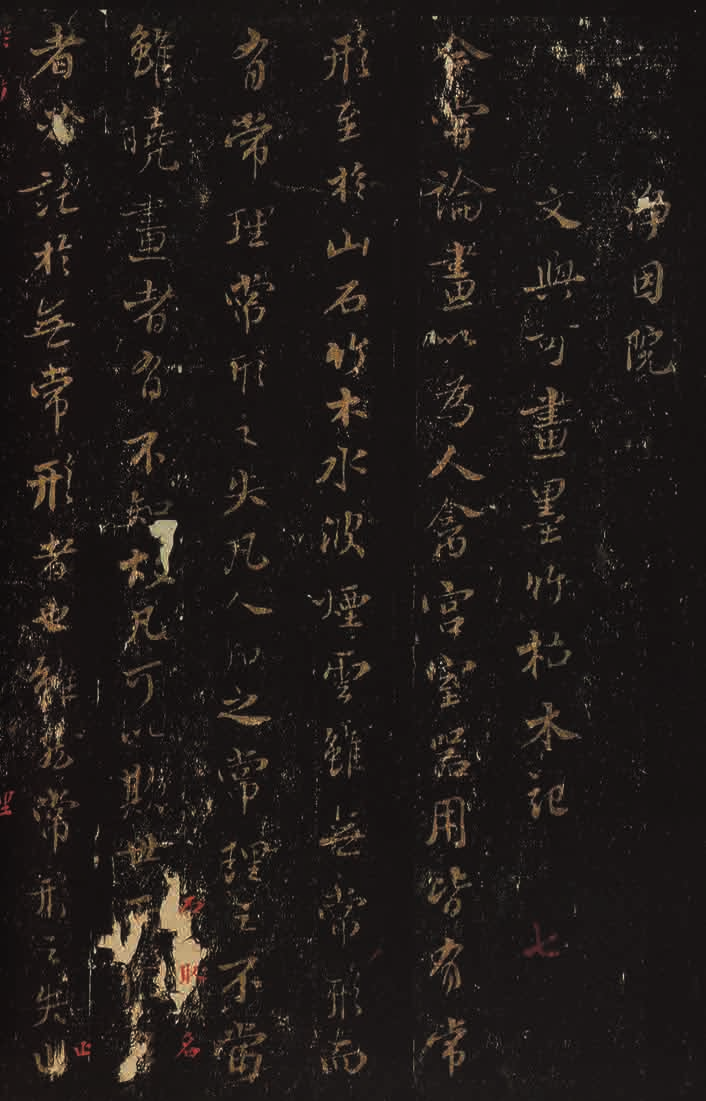 淨因院
文與可畫墨竹枯木記
七
余嘗論畫以為人禽宮室器用皆有常
形至於山石竹木水波煙雲雖無常形而
有常理常形之失凡人知之常理之不當
而取名
雖曉畫者有不知故凡可以欺世
止
者必託於無常形者也雖然常形之失止